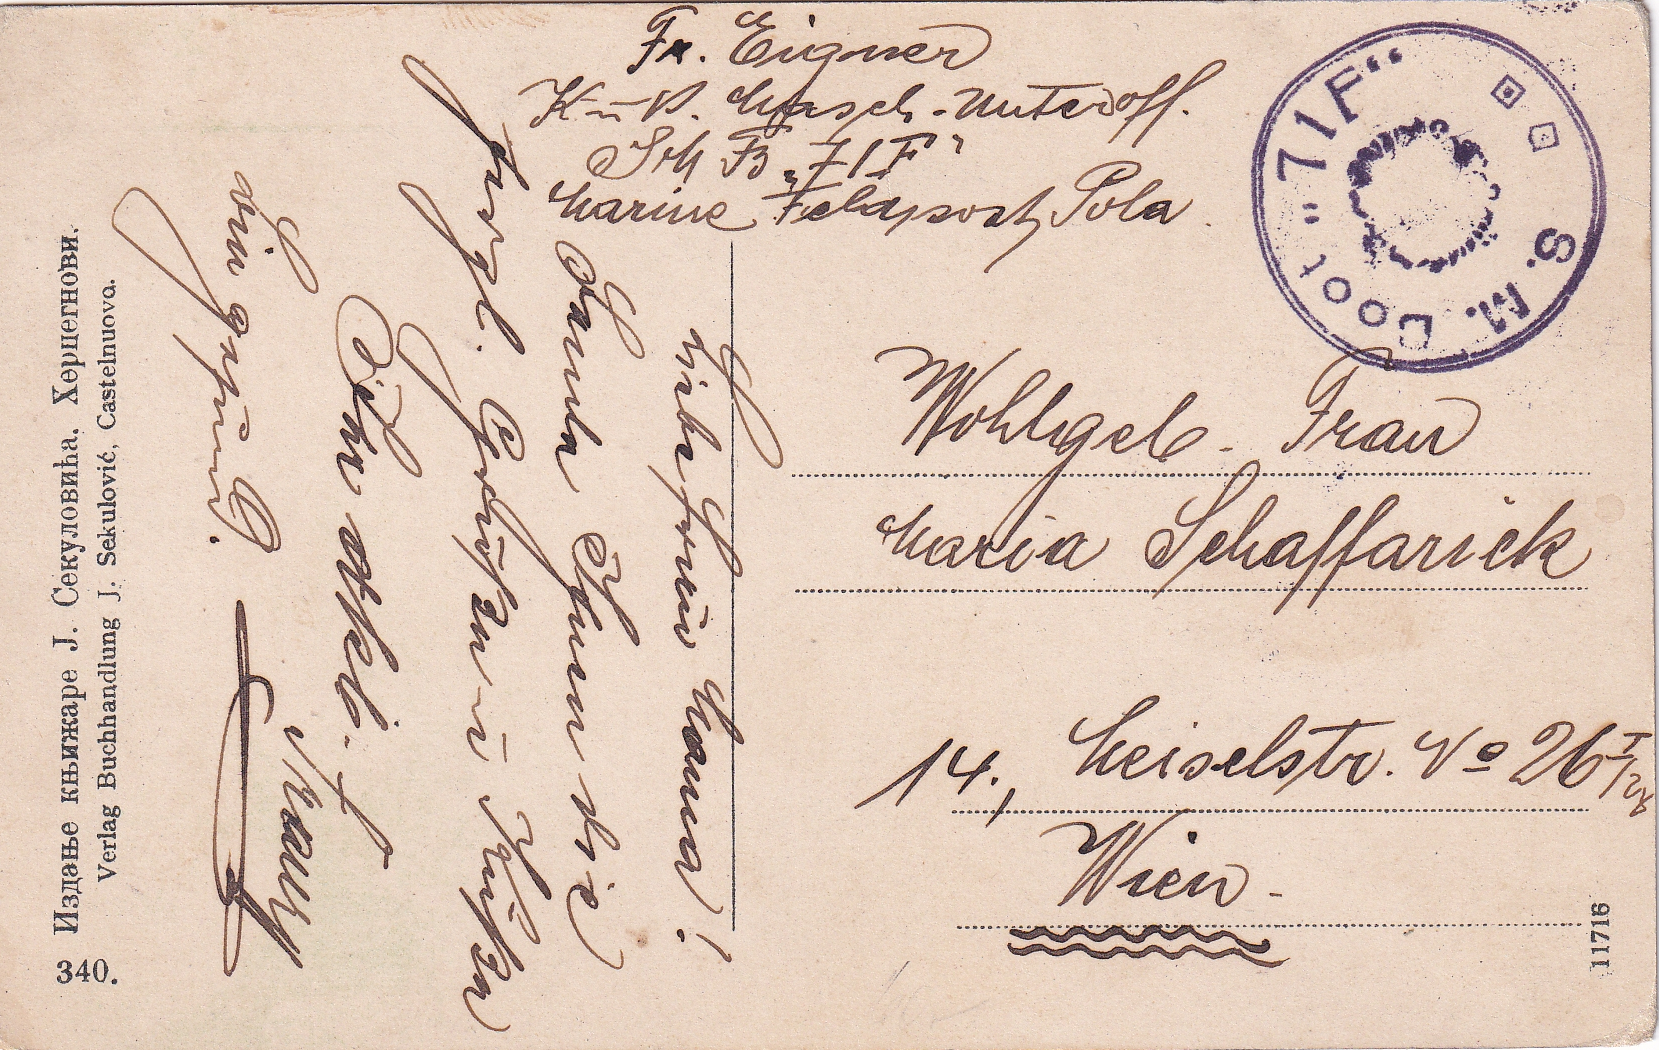 Fr. Eigner
K u K. Masch. Unteroff.
Sm B „71F"
Marine Feldpost, Pola
S. M. Boot "71F"
Wohlgeb. Frau
Maria Schaffarick
14., Meiselstr. No 26 I/
Wien
Liebe Mama!
Sende Ihnen die
herzl. Grüße u. Küsse
Ihr
Franz
Издање књижаре Ј. Секуловића, Херцегнови.
Verlag Buchhandlung J. Sekulović, Castelnuovo.
340.
11716